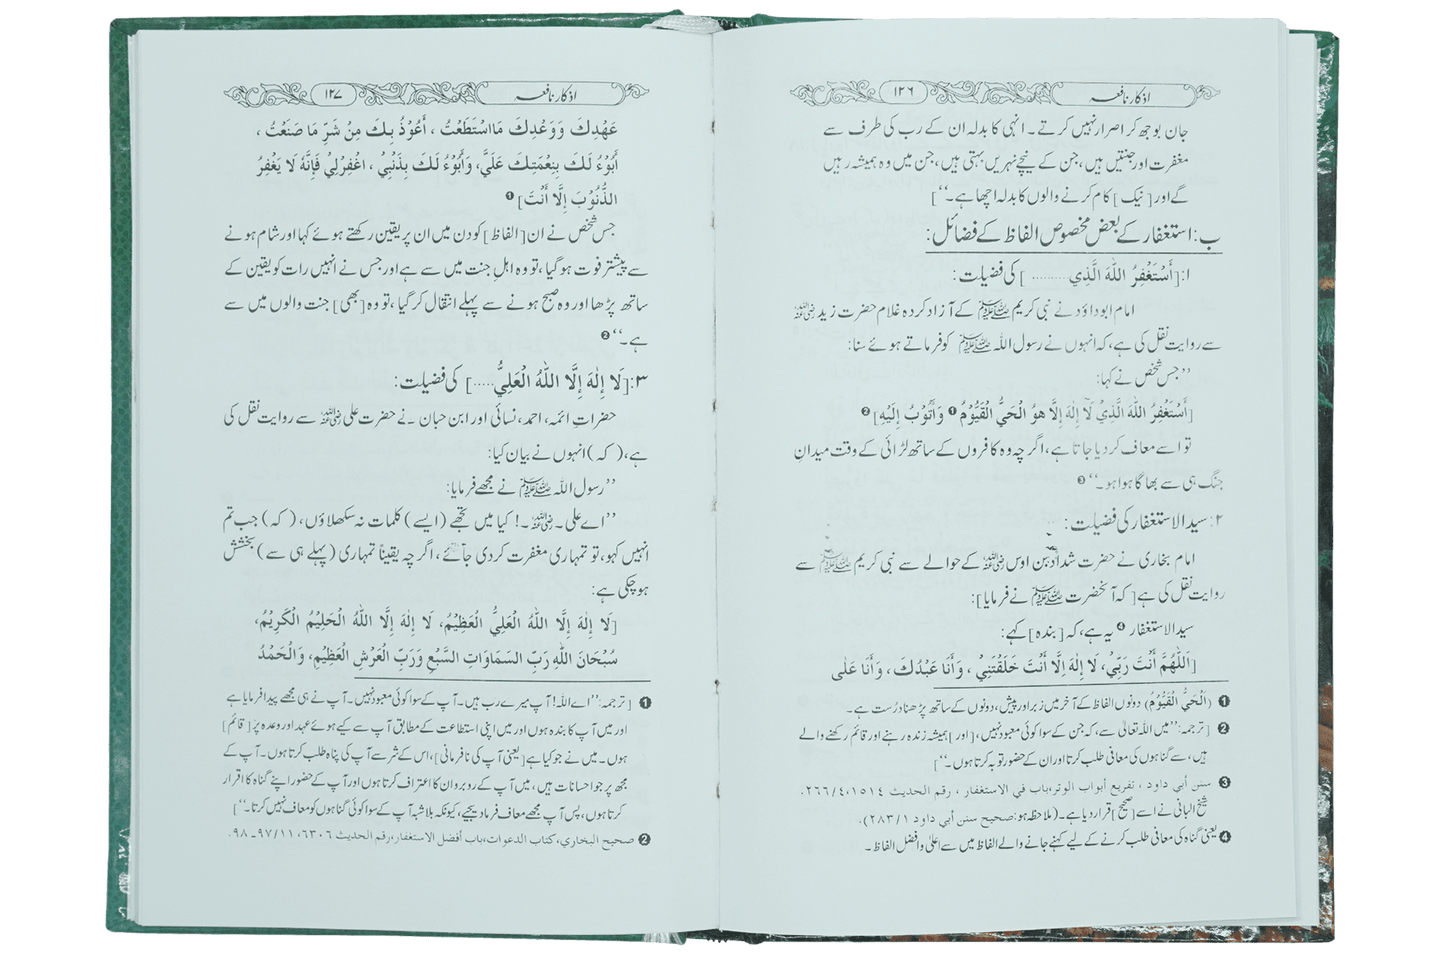 اذکار نافعہ ۱۲۶
جان بوجھ کر اصرار نہیں کرتے۔ انہی کا بدلہ ان کے رب کی طرف سے
مغفرت اور جنتیں ہیں، جن کے نیچے نہریں بہتی ہیں، جن میں وہ ہمیشہ رہیں
گے اور [نیک] کام کرنے والوں کا بدلہ اچھا ہے۔‘‘]
ب: استغفار کے بعض مخصوص الفاظ کے فضائل:
۱: [أَسْتَغْفِرُ اللّٰهَ الَّذِي ..........] کی فضیلت:
امام ابوداؤد نے نبی کریم ﷺ کے آزاد کردہ غلام حضرت زید رضی اللہ عنہ
سے روایت نقل کی ہے، کہ انہوں نے رسول اللہ ﷺ کو فرماتے ہوئے سنا:
’’جس شخص نے کہا:
[أَسْتَغْفِرُ اللّٰهَ الَّذِيْ لَآ إِلٰهَ إِلَّا هُوَ الْحَيُّ الْقَيُّوْمُ ❶ وَأَتُوْبُ إِلَيْهِ] ❷
تو اسے معاف کر دیا جاتا ہے، اگرچہ وہ کافروں کے ساتھ لڑائی کے وقت میدانِ
جنگ ہی سے بھاگا ہوا ہو۔‘‘ ❸
۲: سید الاستغفار کی فضیلت:
امام بخاری نے حضرت شداد بن اوس رضی اللہ عنہ کے حوالے سے نبی کریم ﷺ سے
روایت نقل کی ہے [کہ آنحضرت ﷺ نے فرمایا]:
سید الاستغفار ❹ یہ ہے، کہ [بندہ] کہے:
[اَللّٰهُمَّ أَنْتَ رَبِّيْ، لَا إِلٰهَ إِلَّا أَنْتَ خَلَقْتَنِيْ، وَأَنَا عَبْدُكَ، وَأَنَا عَلٰى
❶ (اَلْحَيُّ الْقَيُّوْمُ) دونوں الفاظ کے آخر میں زبر اور پیش، دونوں کے ساتھ پڑھنا درست ہے۔
❷ [ترجمہ: ’’میں اللہ تعالیٰ سے، کہ جن کے سوا کوئی معبود نہیں، [اور] ہمیشہ زندہ رہنے اور قائم رکھنے والے
ہیں، سے گناہوں کی معافی طلب کرتا اور ان کے حضور توبہ کرتا ہوں۔‘‘]
❸ سنن أبي داود، تفريع أبواب الوتر، باب في الاستغفار، رقم الحديث ١٥١٤، ٤/٢٦٦.
شیخ البانی نے اسے [صحیح] قرار دیا ہے۔ (ملاحظہ ہو: صحيح سنن أبي داود ١/٢٨٣).
❹ یعنی گناہ کی معافی طلب کرنے کے لیے کہے جانے والے الفاظ میں سے اعلیٰ و افضل الفاظ۔
اذکار نافعہ ۱۲۷
عَهْدِكَ وَوَعْدِكَ مَا اسْتَطَعْتُ، أَعُوْذُ بِكَ مِنْ شَرِّ مَا صَنَعْتُ،
أَبُوْءُ لَكَ بِنِعْمَتِكَ عَلَيَّ، وَأَبُوْءُ لَكَ بِذَنْبِيْ، اغْفِرْلِيْ فَإِنَّهُ لَا يَغْفِرُ
الذُّنُوْبَ إِلَّا أَنْتَ] ❶
جس شخص نے ان [الفاظ] کو دن میں ان پر یقین رکھتے ہوئے کہا اور شام ہونے
سے پیشتر فوت ہو گیا، تو وہ اہلِ جنت میں سے ہے اور جس نے انہیں رات کو یقین کے
ساتھ پڑھا اور وہ صبح ہونے سے پہلے انتقال کر گیا، تو وہ [بھی] جنت والوں میں سے
ہے۔‘‘ ❷
۳: [لَا إِلٰهَ إِلَّا اللّٰهُ الْعَلِيُّ.....] کی فضیلت:
حضراتِ ائمہ، احمد، نسائی اور ابن حبان نے حضرت علی رضی اللہ عنہ سے روایت نقل کی
ہے، (کہ) انہوں نے بیان کیا:
’’رسول اللہ ﷺ نے مجھے فرمایا:
’’اے علی۔ رضی اللہ عنہ۔! کیا میں تجھے (ایسے) کلمات نہ سکھلاؤں، (کہ) جب تم
انہیں کہو، تو تمہاری مغفرت کر دی جائے، اگرچہ یقیناً تمہاری (پہلے ہی سے) بخشش
ہو چکی ہے:
[لَا إِلٰهَ إِلَّا اللّٰهُ الْعَلِيُّ الْعَظِيْمُ، لَا إِلٰهَ إِلَّا اللّٰهُ الْحَلِيْمُ الْكَرِيْمُ،
سُبْحَانَ اللّٰهِ رَبِّ السَّمَاوَاتِ السَّبْعِ وَرَبِّ الْعَرْشِ الْعَظِيْمِ، وَالْحَمْدُ
❶ [ترجمہ: ’’اے اللہ! آپ میرے رب ہیں۔ آپ کے سوا کوئی معبود نہیں۔ آپ نے ہی مجھے پیدا فرمایا ہے
اور میں آپ کا بندہ ہوں اور میں اپنی استطاعت کے مطابق آپ سے کیے ہوئے عہد اور وعدہ پر [قائم]
ہوں۔ میں نے جو کیا ہے [یعنی آپ کی نافرمانی]، اس کے شر سے آپ کی پناہ طلب کرتا ہوں۔ آپ کے
مجھ پر جو احسانات ہیں، میں آپ کے روبرو ان کا اعتراف کرتا ہوں اور آپ کے حضور اپنے گناہ کا اقرار
کرتا ہوں، پس آپ مجھے معاف فرما دیجیے، کیونکہ بلاشبہ آپ کے سوا کوئی گناہوں کو معاف نہیں کرتا۔‘‘]
❷ صحيح البخاري، كتاب الدعوات، باب أفضل الاستغفار، رقم الحديث ٦٣٠٦، ١١/٩٧ـ٩٨.